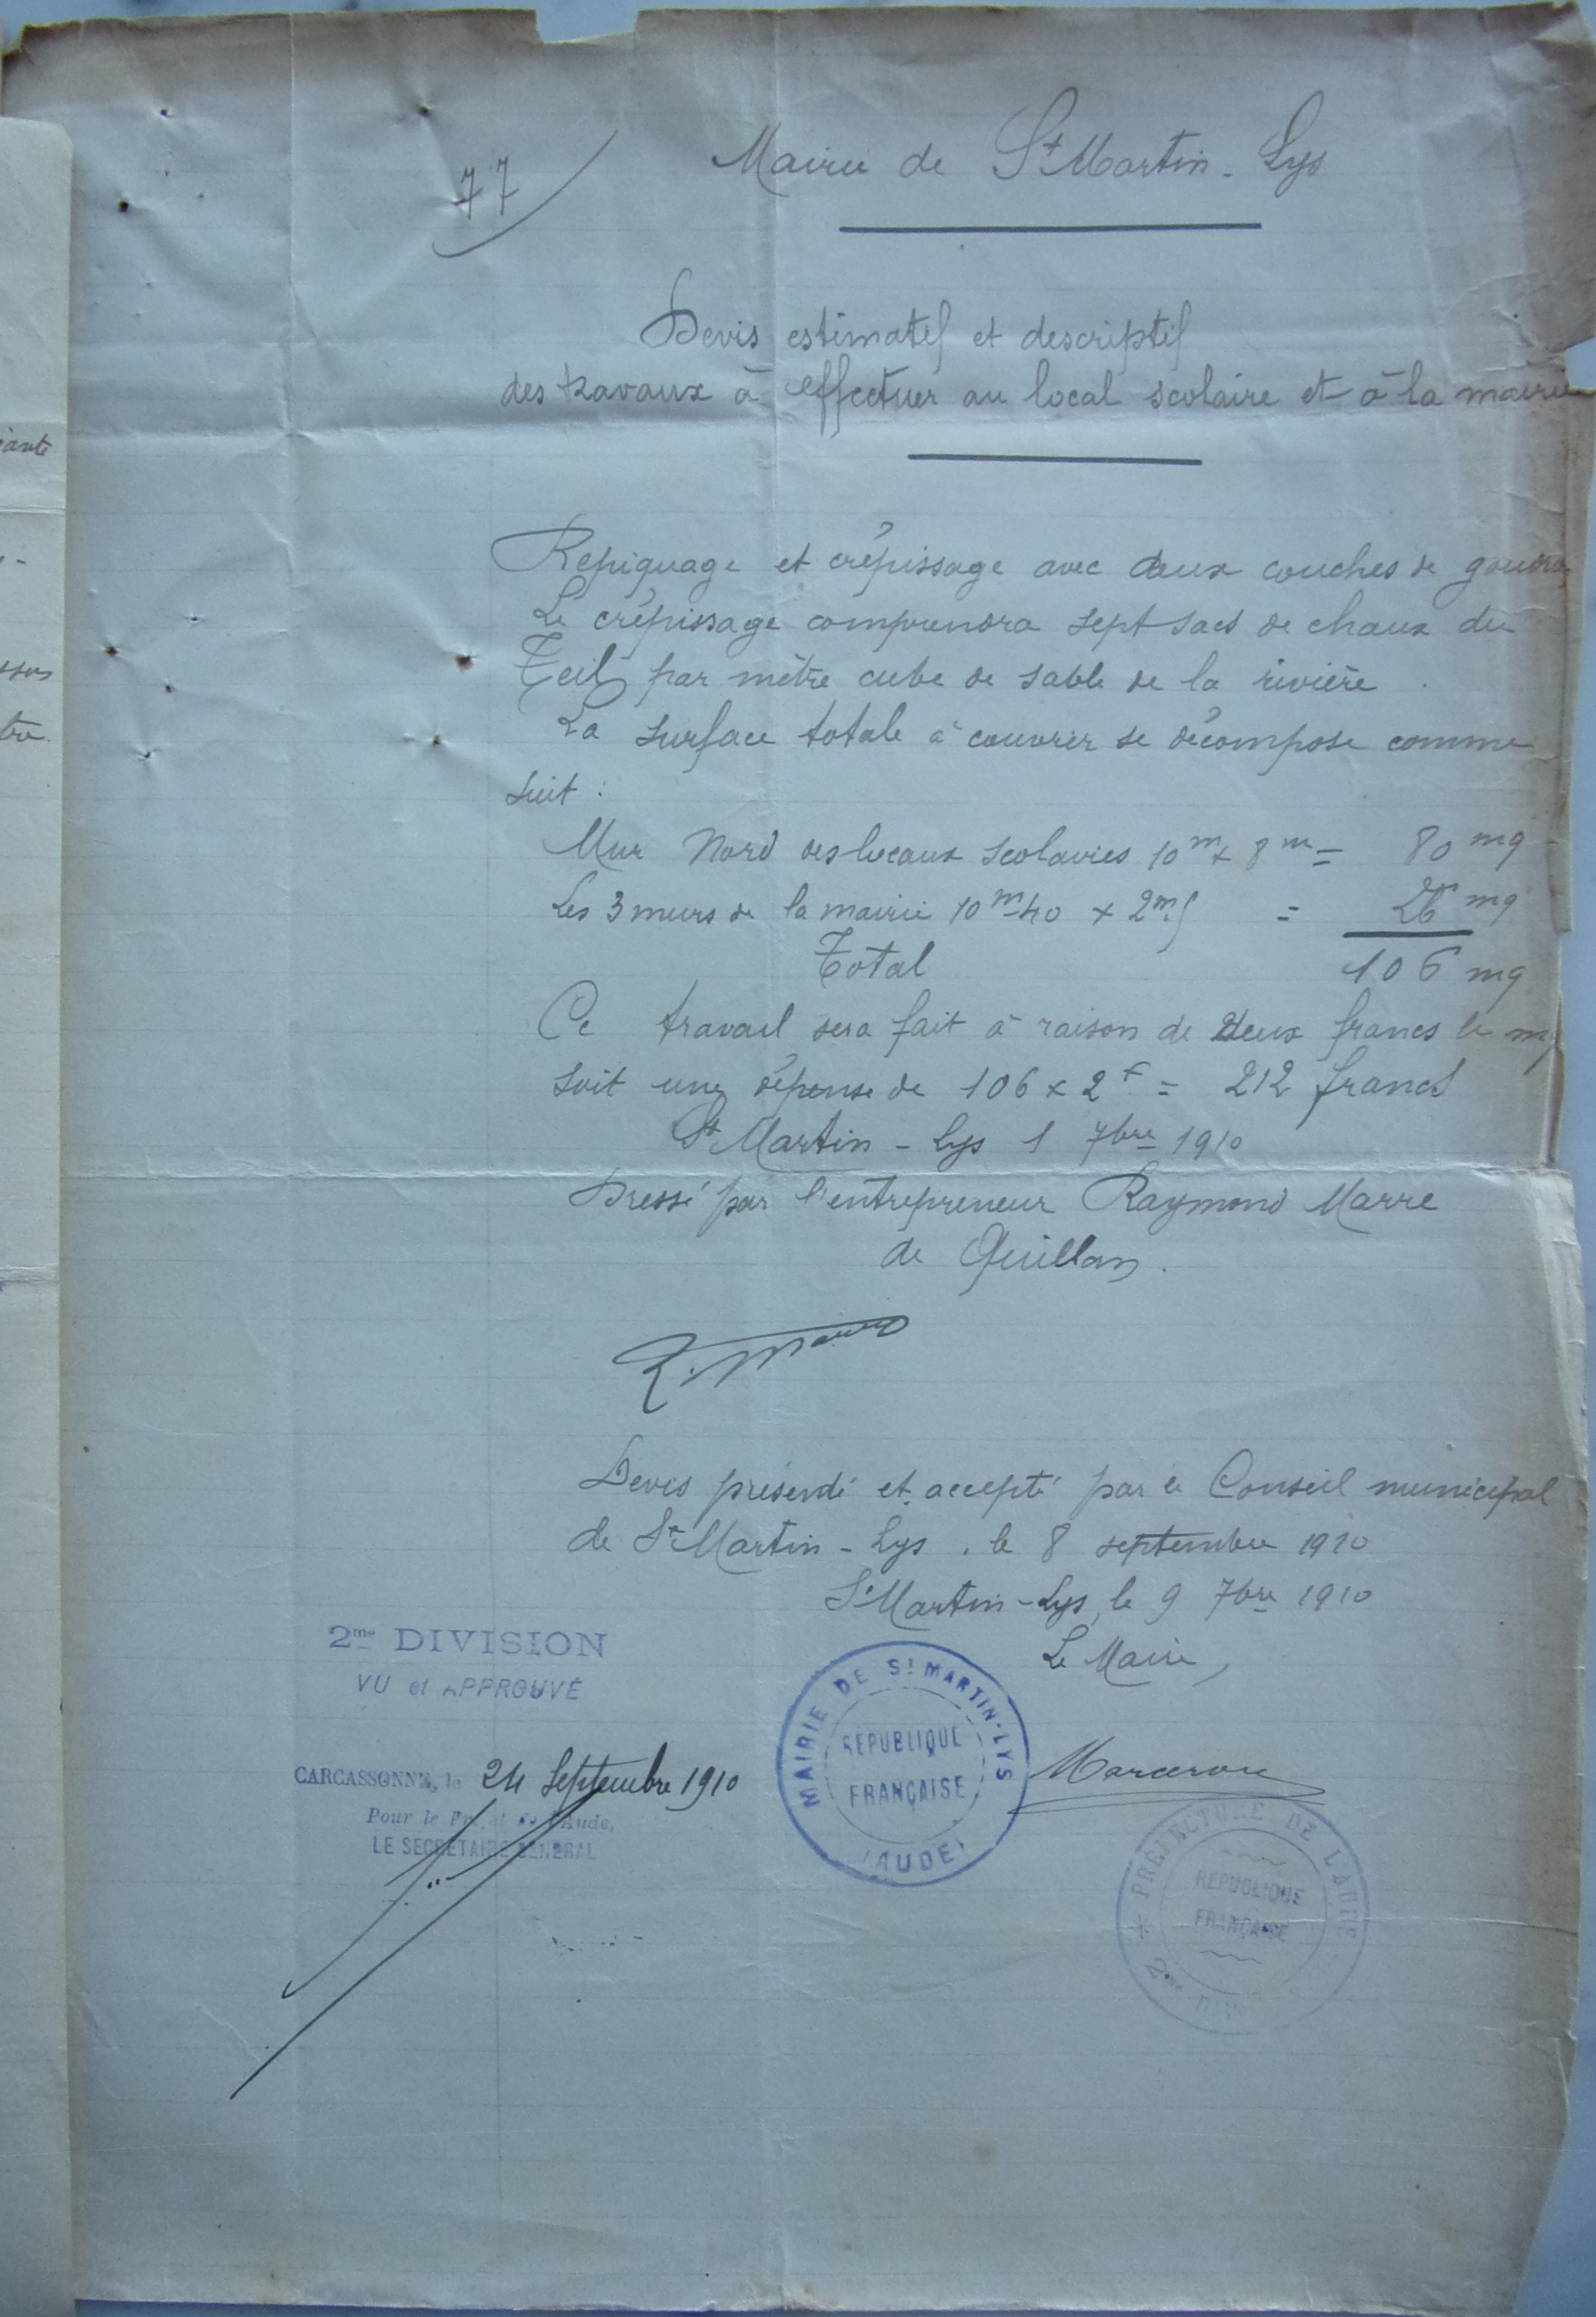 77
Mairie de St Martin-Lys
Devis estimatif et descriptif
des travaux à effectuer au local scolaire et à la mairie
Repiquage et crépissage avec deux couches de
Le crépissage comprendra sept sacs de chaux du
Teil par mètre cube de sable de la rivière.
La surface totale à couvrir se décompose comme
suit :
Mur Nord des locaux scolaires 10 m x 8 m = 80 mq
Les 3 murs de la mairie 10 m 40 x 2m5 = 26 mq
Total 106 mq
Ce travail sera fait à raison de deux francs le mq
soit une dépense de 106 x 2 f = 212 francs
St Martin-Lys 1 7bre 1910
Dressé par l'entrepreneur Raymond Marre
de Quillan.
R. Marre
Devis présenté et accepté par le Conseil municipal
de St Martin-Lys, le 8 septembre 1910
St Martin-Lys, le 9 7bre 1910
Le Maire,
2me DIVISION
VU et APPROUVÉ
CARCASSONNE, le 24 Septembre 1910
Pour le Préfet de l'Aude,
LE SECRÉTAIRE GÉNÉRAL
MAIRIE DE St MARTIN-LYS
RÉPUBLIQUE
FRANÇAISE
(AUDE)
PRÉFECTURE DE L'AUDE
RÉPUBLIQUE
FRANÇAISE
2me DIV
iante
tre.